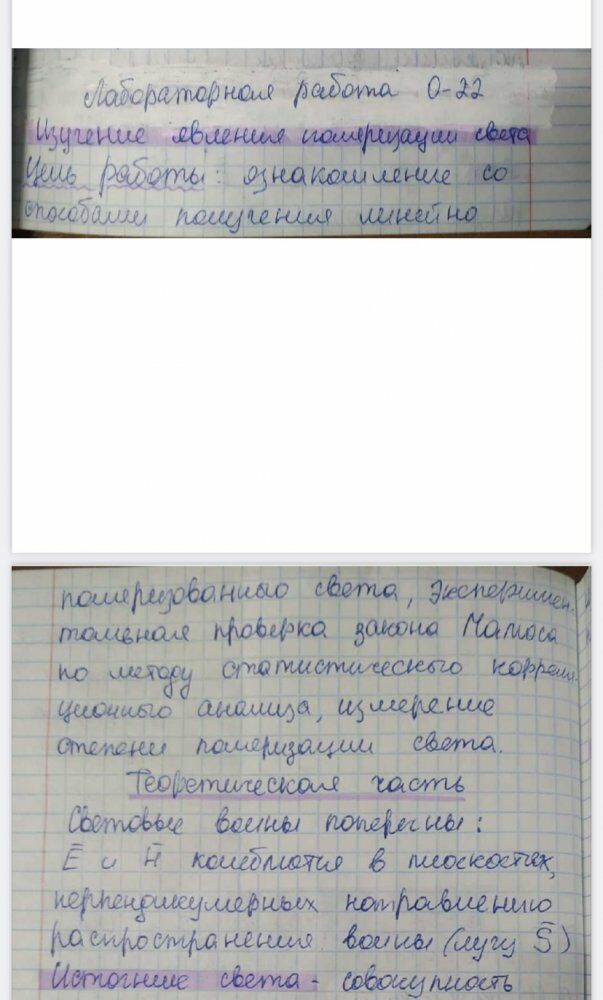 Лабораторная работа О-22
Изучение явления поляризации света
Цель работы: ознакомление со
способами получения линейно
поляризованного света, эксперимен-
тальная проверка закона Малюса
по методу статистического корреля-
ционного анализа, измерение
степени поляризации света.
Теоретическая часть
Световые волны поперечны:
Ē и H̄ колеблются в плоскостях,
перпендикулярных направлению
распространения волны (лучу S̄)
Источник света - совокупность